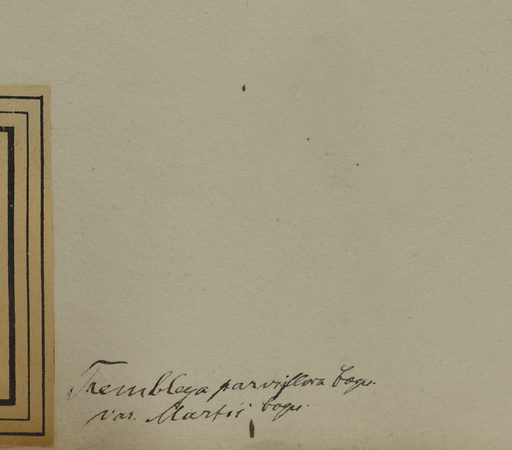 Trembleya parviflora Cogn.
var. Martii Cogn.